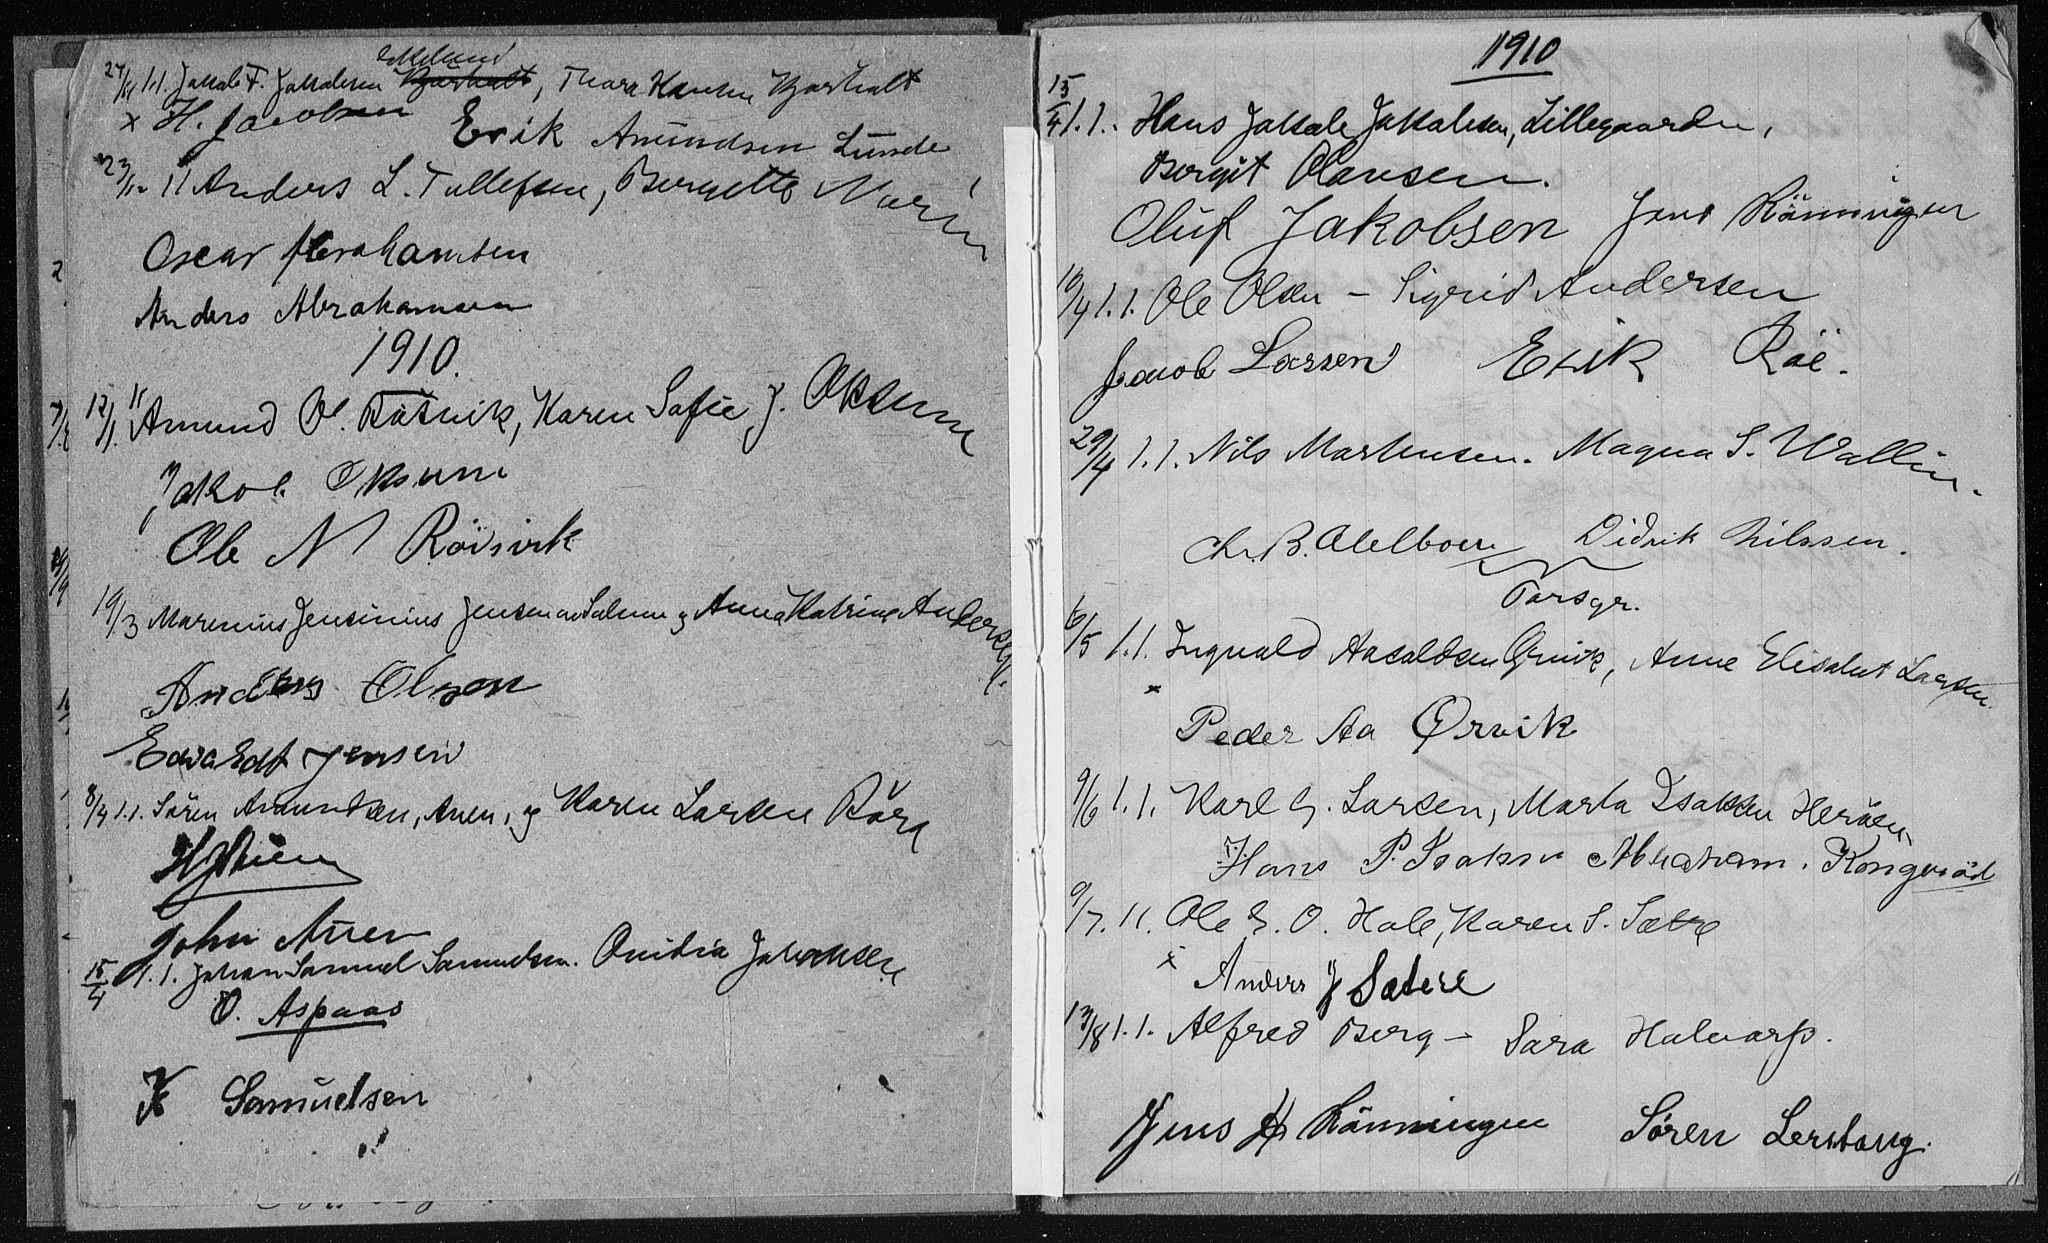 27/11 1.1. Jakob F. Jakobsen Kjørholt, Thora Hansen Kjørholt
x H. Jacobsen Erik Amundsen Lunde
23/12 11 Anders L. Tollefsen, Bergette Marin
Oscar Abrahamsen
Anders Abrahamsen
1910.
12/1. 11 Amund O. Røsvik, Karen Sofie J. Oksum
Jakob Oksum
Ole N Röisvik
19/3 Marinius Jensinius Jensen av Salum og Anna Katrine Andersen
Anders Olsen
Edvardt Jensen
8/4 1.1. Sören Amundsen, Auen, og Karen Larsen Röra
John Auen
15/4 1.1. Johan Samuel Samuelsen. Ovidia Johansen
O. Aspaas
K Samuelsen
1910
15/4 1.1. Hans Jakob Jakobsen, Lillegaarden,
Bergit Olausen.
Oluf Jakobsen Jens Rönningen
16/4 1.1. Ole Olsen - Sigrid Andersen
Jacob Larsen Erik Röe.
29/4 1.1. Nils Martensen. Magna S. Wallin.
Chr. B. Didrik Nilssen.
Porsgr.
6/5 1.1. Ingvald Aasoldsen Ørvik, Anne Elisabet Larsen.
x
Peder Aa Ørvik
9/6 1.1. Karl G. Larsen, Marta Isaksen Heröen
Hans P. Isaksen Abraham. Kongerød
9/7. 11. Ole E. O. Hole, Karen S. Sætre
x Anders J Sætere
13/8 1.1. Alfred Berg - Sara Halvorss.
Jens H Rönningen Sören Lerstang.